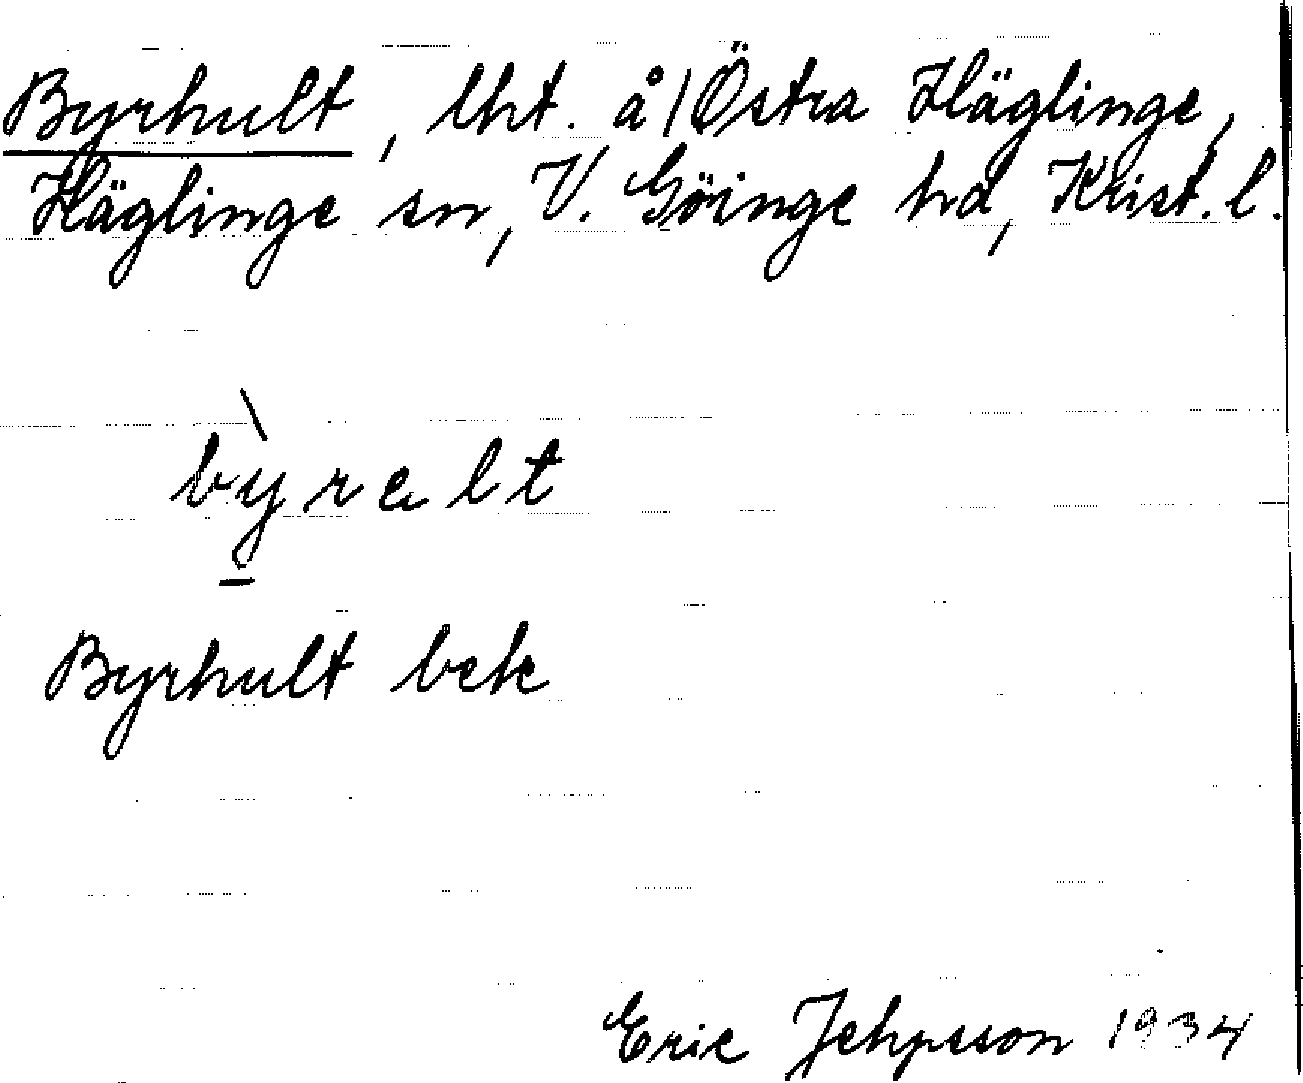 Byrhult, lht. å / Östra Häglinge,
Häglinge sn, V. Göinge hd, Krist. l.
bỳralt
Byrhult bek
Eric Jehpsson 1934